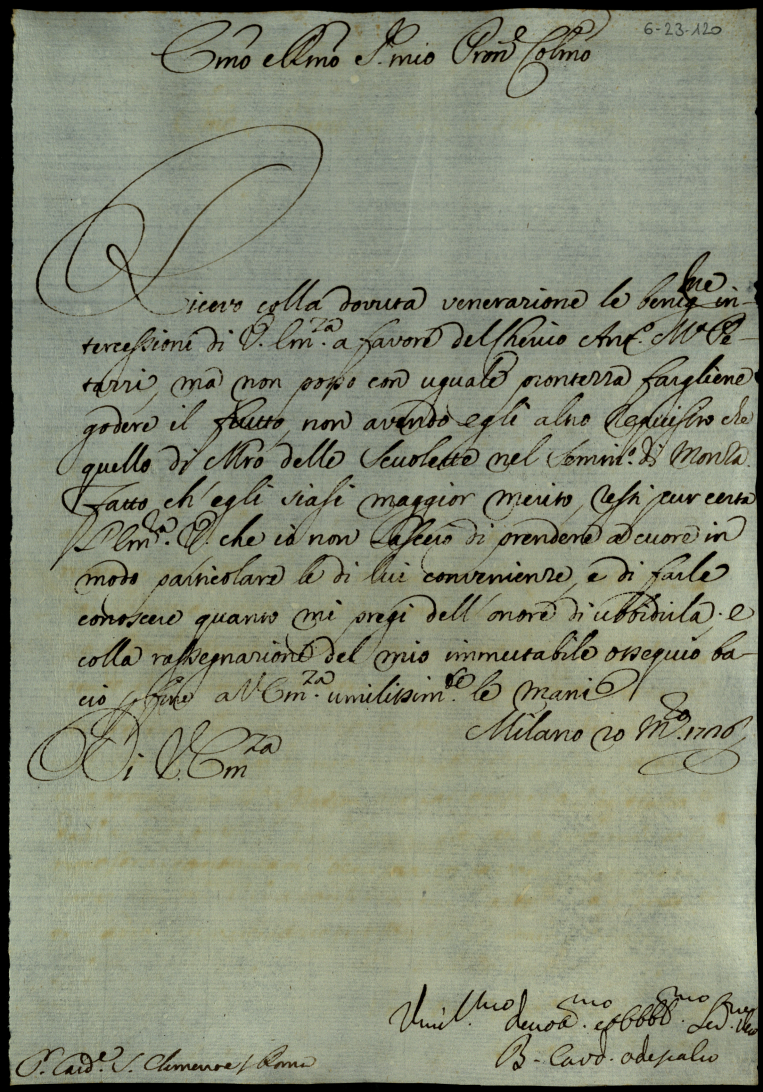 6-23-120
Emo e Rmo Sr. mio Pron. Colmo
Ricevo colla dovuta venerazione le benigne in-
tercessioni di V. Em.za a favore del Cherico Ant. Ma Pe-
tarri, ma non posso con uguale prontezza fargliene
godere il frutto, non avendo egli altro requisito che
quello di Mro delle Scuolette nel Semin.o di Monza.
Fatto ch'egli siasi maggior merito, resti pur certa
l'Em.za V. che io non lascerò di prendere a cuore in
modo particolare le di lui convenienze, e di farle
conoscere quanto mi pregi dell'onore di ubbidirla. e
colla rassegnazione del mio immutabile ossequio ba-
cio p fine a V. Em.za umilissim.te le mani
Milano 20 Mzo. 1726
Di V. Em za
Umil.mo devot.mo ed obbb.mo Ser.
B. Card. Odescalco
Sr. Card.e S. Clemente / Roma